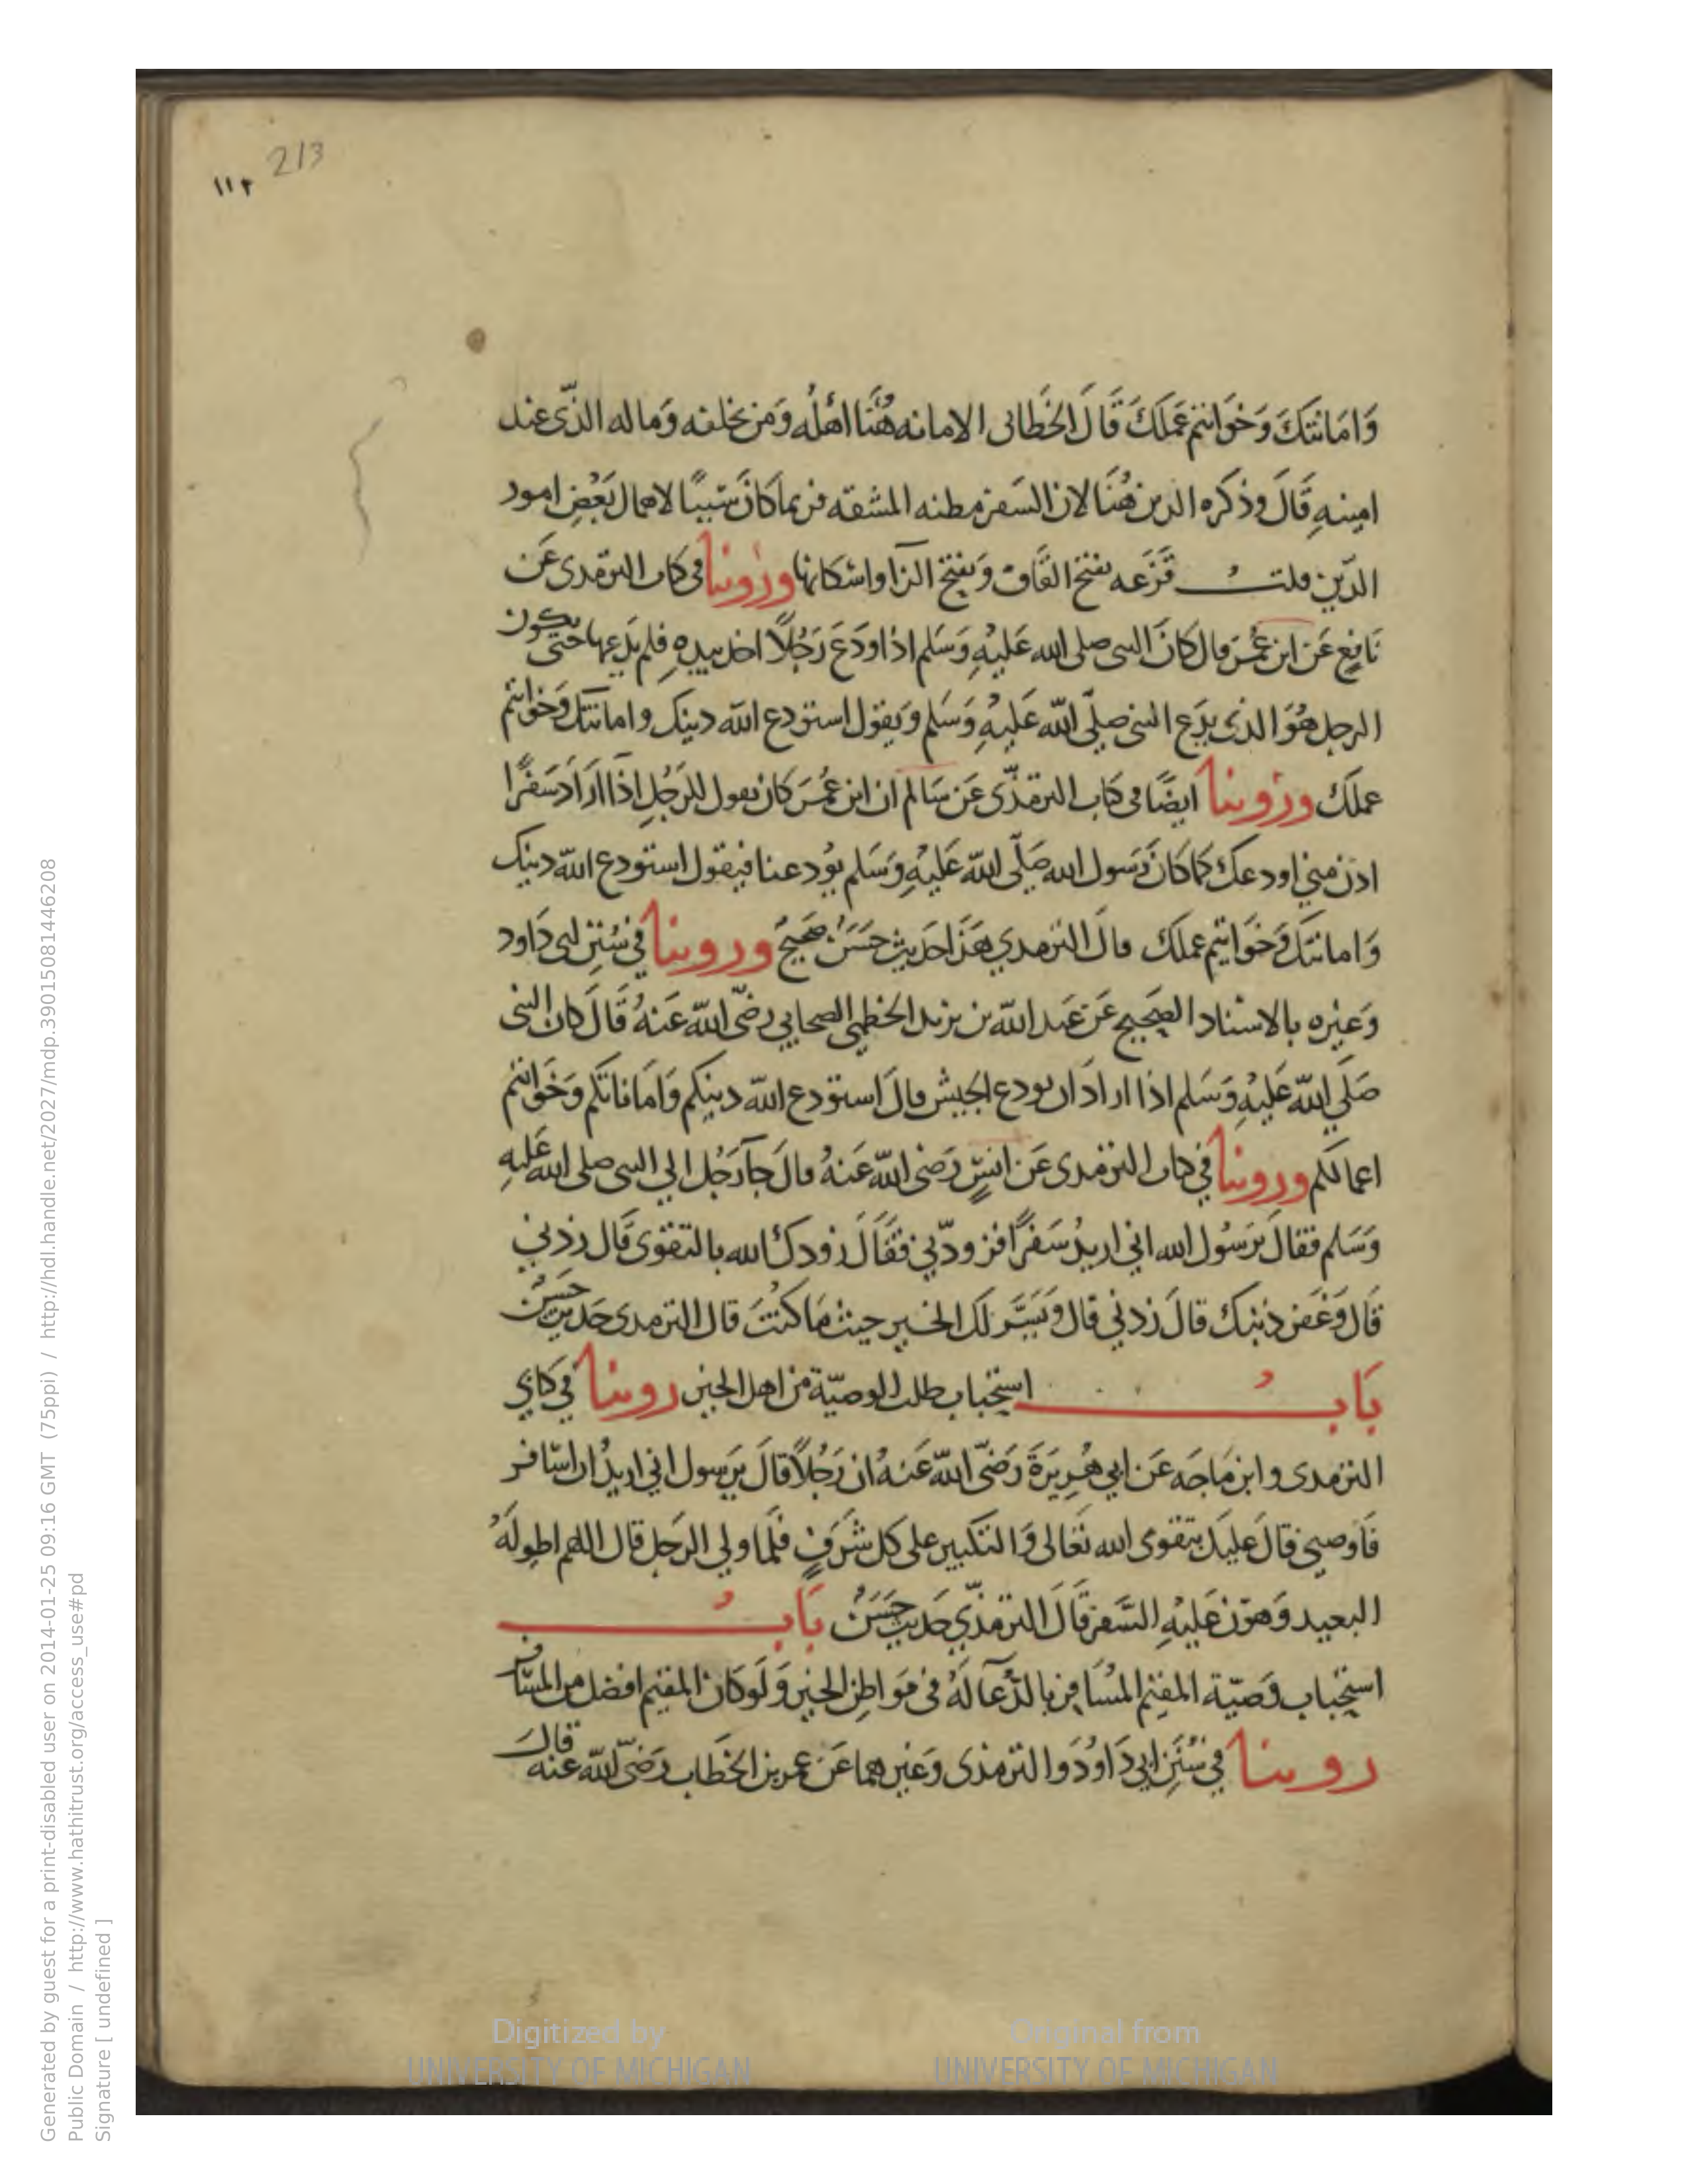 213
١١٢
وَامَانتَكَ وَخَوَاتيم عَمَلَكَ قَالَ الخَطابى الامانه هُنَا اهْلُه وَمَن يخلفه وَماله الذّى عند
امينهِ قَالَ وذكره الدين هُنَا لان السَفر مظنه المشقه فربما كانَ سَبَبًا لاهمال بَعْضِ امور
الدّين قلت قَزَعَه بفتح القَاف وَبفتح الزاو اسْكانها وروينا فى كتاب الترمدى عَن
نَافِع عَن ابن عُمَر قال كانَ النبى صلى الله عَليْهِ وَسَلم اذا ودَعَ رَجُلاً اخد بيدِه فلم يَدعها حَتى يكون
الرجل هُوَ الذى يدَع النبى صلّى الله عَليْهِ وَسَلم وَيقول استودع الله دينك وامانتك وَخواتيم
عملكَ وروينا ايضًا فى كتاب الترمذّى عَن سَالم ان ابن عُمَر كان يقول للرَجُل اذا ارَادَ سَفرًا
ادن منى اودعك كما كانَ رَسول الله صَلّى الله عَليْهِ وَسَلم يوُدعنا فيقول استودع الله دينك
وَامانتك وَخوَاتيم عملكَ قالَ الترمدي هَذَا حَديث حَسَنٌ صَحيح وروينا في سُنَنِ ابى دَاود
وَغيْره بالاسناد الصَحيح عَن عَبد الله بن يزيد الخطمي الصحابي رضّى الله عَنهُ قَالَ كان النبى
صَلي الله عَليْهِ وَسَلم اذا ارادَ ان يودع الجيش قالَ استودع الله دينكم وَامَاناتكم وَخوَاتيم
اعمالكم وروينا في كتاب الترمدى عَن انسٍ رَضى الله عَنهُ قالَ جآ رَجُل الي النبى صلى الله عَليهِ
وَسَلم فقالَ يرَسُول الله اني اريدُ سَفرًا فزودّني فقَالَ زودك الله بالتقوى قَال زدني
قَال وَغَفر ذنبك قالَ زدني قال وَيَسَّر لكَ الخير حيث مَا كنْتَ قال الترمدى حَديث حَسَنٌ
بَابُ استحباب طلب الوصيّة من اهل الخير روينا في كتابي
الترمدى وابن مَاجَه عَن ابي هُريرَةَ رَضّى الله عَنهُ ان رَجُلاً قالَ يرَسول اني اريدُ ان اسَافر
فَاوصنى قالَ عليكَ بتقوى الله تعَالى وَالتكبير على كل شَرَفٍ فلَما ولي الرَجل قال اللهم اطوِ لَهُ
البعيد وَهوّن عَليْهِ السَّفر قَالَ الترمذّي حَديث حَسَنٌ بَابُ
استحباب وَصيّة المقيم المسَافِر بالدّعآ لهُ فى مَوَاطِن الخير وَلَو كانَ المقيم افضل من المسَافر
روينا في سُنَنِ ابي دَاوُدَ والترمذى وَغيرهما عَن عمر بن الخَطاب رَضى الله عنه قال
Generated by guest for a print-disabled user on 2014-01-25 09:16 GMT (75ppi) / http://hdl.handle.net/2027/mdp.39015081446208
Public Domain / http://www.hathitrust.org/access_use#pd
Signature [ undefined ]
Digitized by
UNIVERSITY OF MICHIGAN
Original from
UNIVERSITY OF MICHIGAN